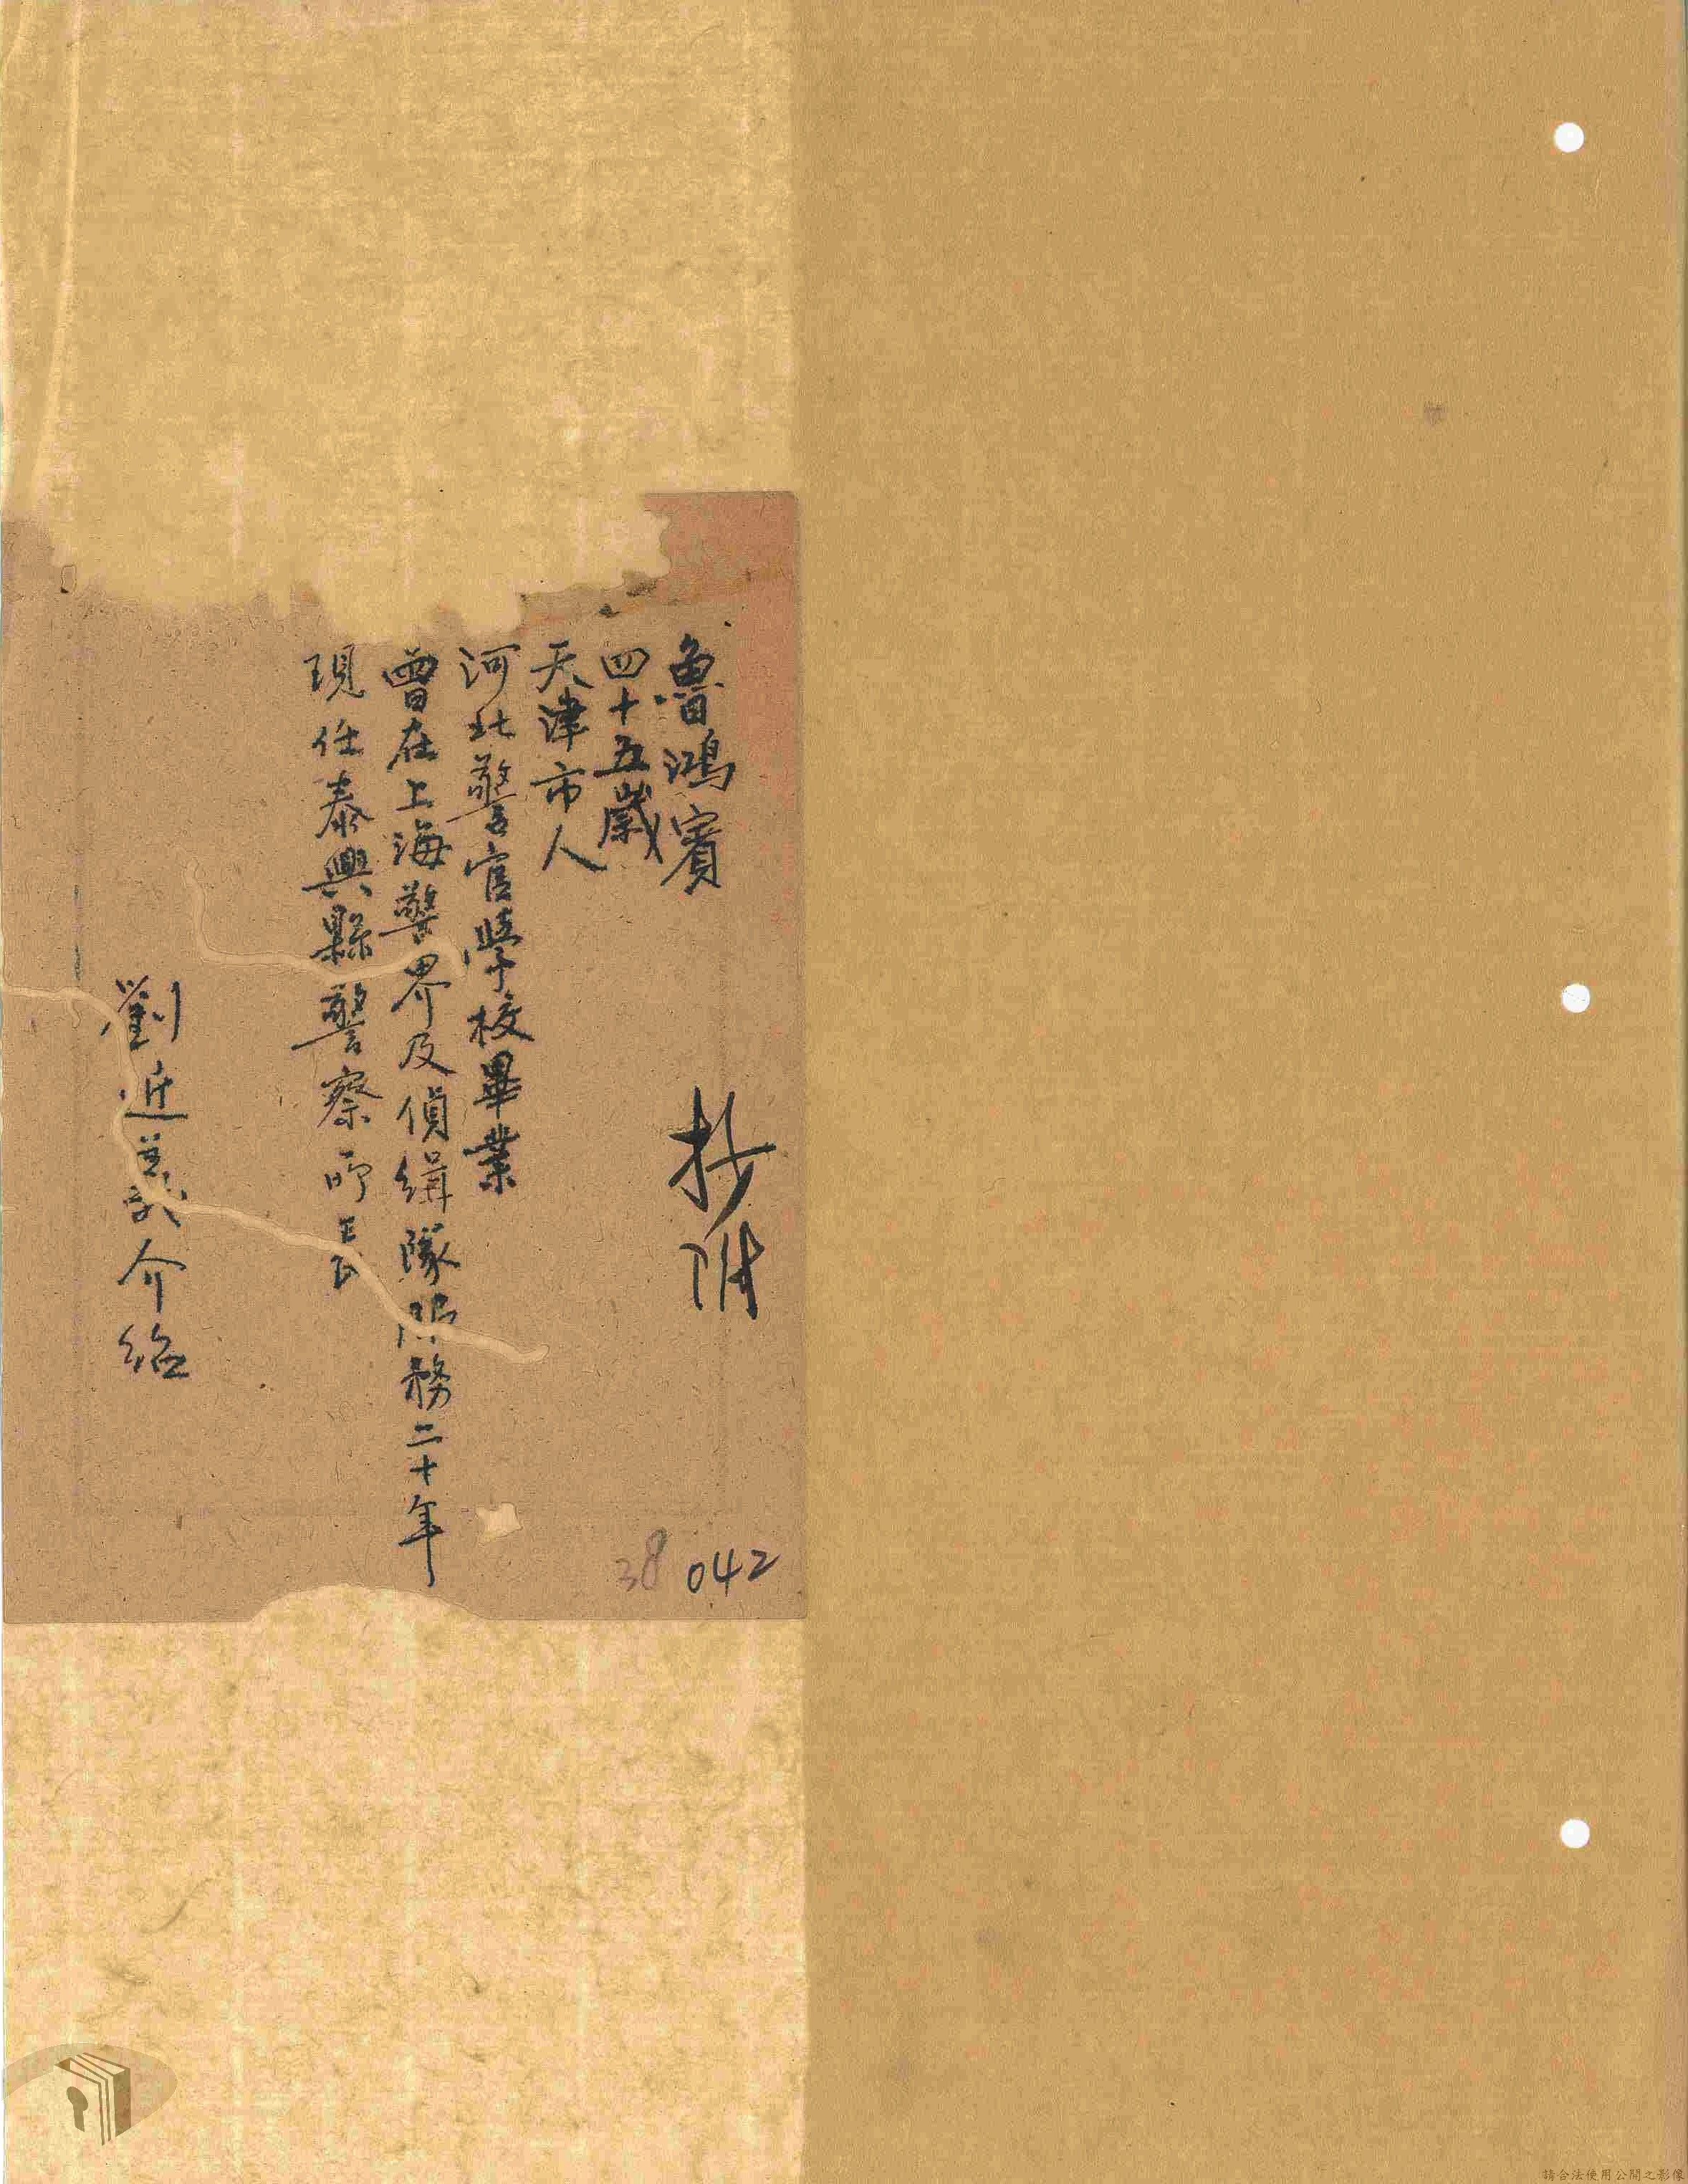 魯鴻賓
抄附
四十五歲
天津市人
河北警官學校畢業
曾在上海警界及偵緝隊服務二十年
現任泰興縣警察所長
劉近義介紹
38 042
請合法使用公開之影像